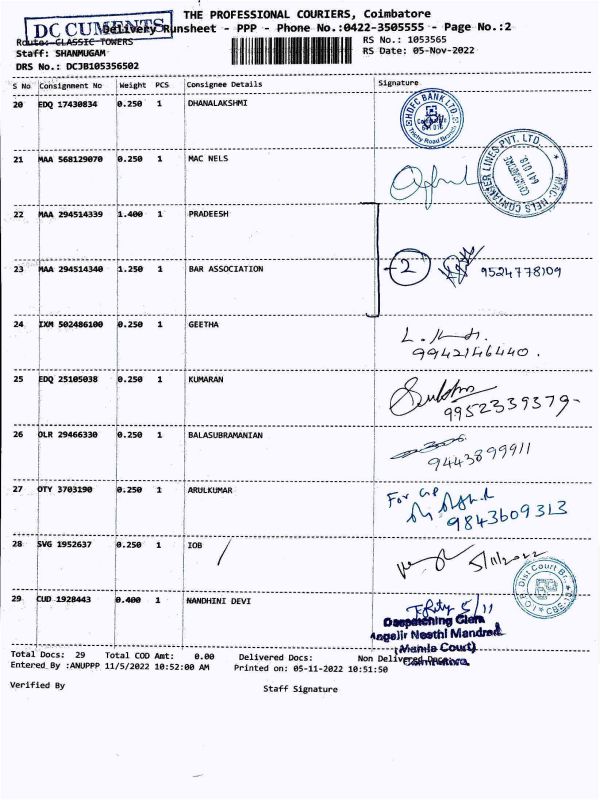 THE PROFESSIONAL COURIERS, Coimbatore
DC CUMENTS
Delivery Runsheet - PPP - Phone No.:0422-3505555 - Page No.:2
Route: CLASSIC TOWERS
RS No.: 1053565
Staff: SHANMUGAM
RS Date: 05-Nov-2022
DRS No.: DCJB105356502
S No Consignment No Weight PCS Consignee Details Signature
20 EDQ 17430834 0.250 1 DHANALAKSHMI
HDFC BANK LTD.
Trichy Road Branch
21 MAA 568129070 0.250 1 MAC NELS
MAC-NELS CONTAINER LINES PVT. LTD.
COIMBATORE
641 018.
22 MAA 294514339 1.400 1 PRADEESH
23 MAA 294514340 1.250 1 BAR ASSOCIATION
2 9524778109
24 IXM 502486100 0.250 1 GEETHA
9942146440.
25 EDQ 25105038 0.250 1 KUMARAN
9952339379
26 OLR 29466330 0.250 1 BALASUBRAMANIAN
9443899911
27 OTY 3703190 0.250 1 ARULKUMAR
For
9843609313
28 SVG 1952637 0.250 1 IOB
5/11/2022
I.O.B. Dist Court Br. CBE-18
29 CUD 1928443 0.400 1 NANDHINI DEVI
5/11
Despatching Clerk
(Mahila Court)
Coimbatore.
Total Docs: 29 Total COD Amt: 0.00 Delivered Docs: Non Delivered Docs:
Entered By :ANUPPP 11/5/2022 10:52:00 AM Printed on: 05-11-2022 10:51:50
Verified By Staff Signature